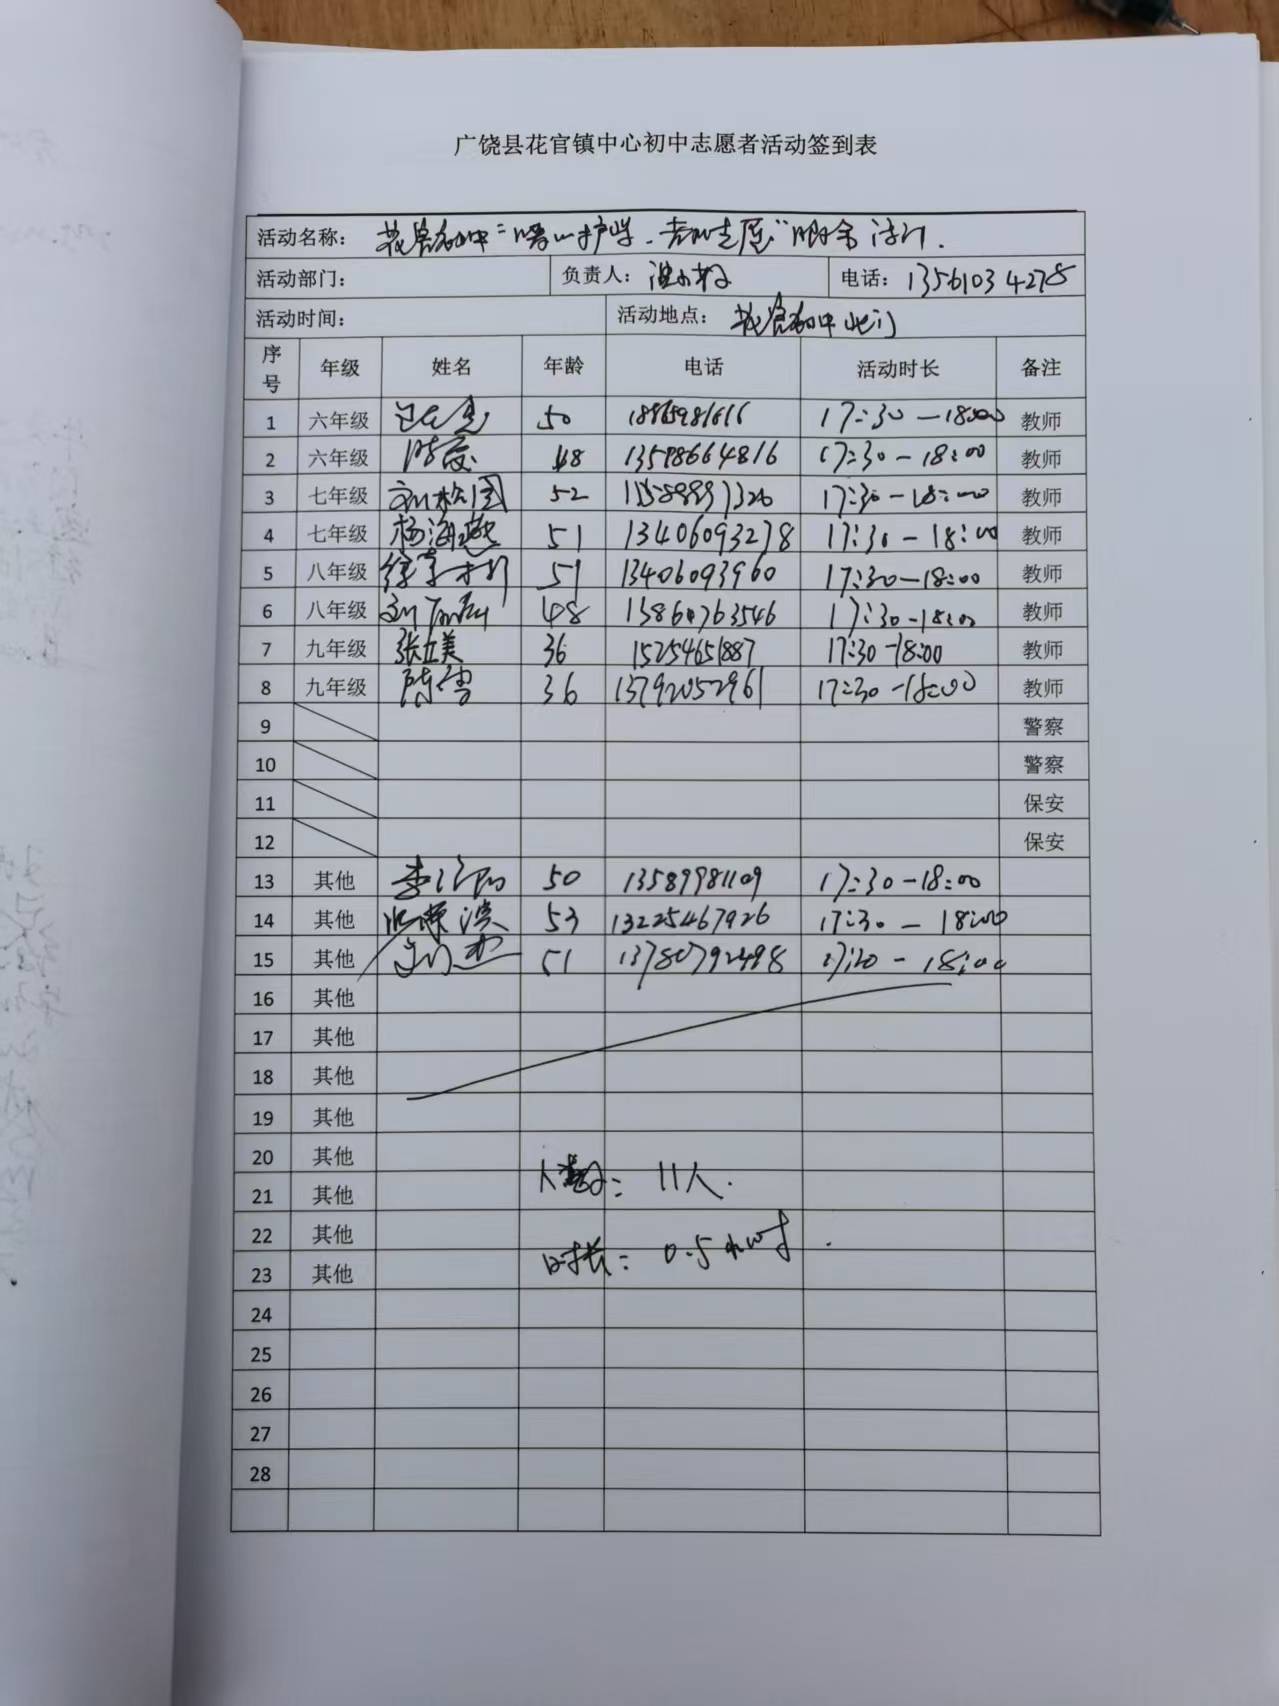 广饶县花官镇中心初中志愿者活动签到表
活动名称： 花官初中"
活动部门： 负责人： 电话：13561034278
活动时间： 活动地点：花官初中北门
序号 年级 姓名 年龄 电话 活动时长 备注
1 六年级 50 17:30-18:00 教师
2 六年级 48 13598664816 17:30-18:00 教师
3 七年级 刘松国 52 17:30-18:00 教师
4 七年级 杨海燕 51 13406093278 17:30-18:00 教师
5 八年级 51 13406093960 17:30-18:00 教师
6 八年级 48 17:30-18:00 教师
7 九年级 张立美 36 15254651887 17:30-18:00 教师
8 九年级 陈雪 36 13792052961 17:30-18:00 教师
9 警察
10 警察
11 保安
12 保安
13 其他 50 13589981109 17:30-18:00
14 其他 53 13225467926 17:30-18:00
15 其他 51 13780792498 18:00
16 其他
17 其他
18 其他
19 其他
20 其他
21 其他 人数：11人.
22 其他
23 其他 时长：0.5小时.
24
25
26
27
28